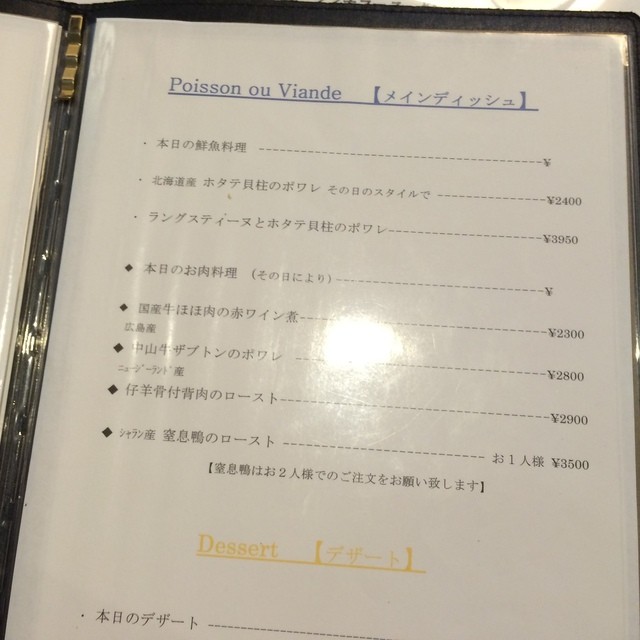 Poisson ou Viande 【メインディッシュ】
・ 本日の鮮魚料理 ---------- ¥
・ 北海道産 ホタテ貝柱のポワレ その日のスタイルで ---------- ¥2400
・ ラングスティーヌとホタテ貝柱のポワレ ---------- ¥3950
◆ 本日のお肉料理 (その日により) ---------- ¥
◆ 国産牛ほほ肉の赤ワイン煮 ---------- ¥2300
広島産
◆ 中山牛ザブトンのポワレ ---------- ¥2800
ニュージーランド産
◆ 仔羊骨付背肉のロースト ---------- ¥2900
◆ シャラン産 窒息鴨のロースト ---------- お1人様 ¥3500
【窒息鴨はお2人様でのご注文をお願い致します】
Dessert 【デザート】
・ 本日のデザート ----------